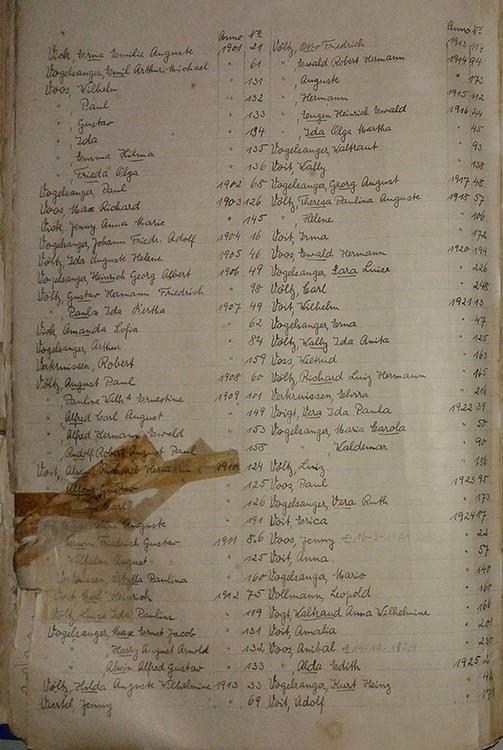 Anno No
Vick, Erna Emilie Auguste 1901 21
Vogelsanger, Emil Arthur Michael " 61
Voos, Wilhelm " 131
" Paul " 132
" , Gustav " 133
" , Ida " 134
" , Emma Hilma " 135
" , Frieda Olga " 136
Vogelsanger, Paul 1902 68
Voos, Max Richard 1903 126
Vick, Jenny Anna Marie " 145
Vogelsanger, Johann Friedr. Adolf 1904 16
Völtz, Ida Auguste Helene 1905 46
Vogelsanger, Heinrich Georg Albert 1906 49
Völtz, Gustav Hermann Friedrich " 98
" Paula Ida Bertha 1907 49
Vick Amanda " 62
Vogelsanger, Arthur " 84
Verkruissen, Robert " 159
Völtz, August Paul 1908 60
" Pauline Ernestine 1909 101
" Alfred Carl August " 149
" Alfred Hermann Ewald " 153
" Rudolf Robert August Paul " 158
Voit, Richard Hermann 1910 124
Gustav " 125
Carl " 126
Auguste " 191
Erwin Friedrich Gustav 1911 86
Wilhelm August " 125
Verkruissen, Sibylla Paulina " 160
Carl Heinrich 1912 75
Luise Ida Pauline " 119
Vogelsanger, Max Ernst Jacob " 131
" Harry August Arnold " 132
" , Alwin Alfred Gustav " 133
Völtz, Hilda Auguste Wilhelmine 1913 33
Viertel, Jenny " 69
Anno No
Völtz, Otto Friedrich 1913 117
" , Ewald Robert Hermann 1914 94
" , Auguste " 173
" , Hermann 1915 112
" , Eugen Heinrich Ewald 1916 44
" , Ida Olga Martha " 45
Vogelsanger, Waltraut " 93
Voit, Wally " 138
Vogelsanger, Georg August 1917 48
Völtz, Theresa Paulina Auguste 1918 57
" , Helene " 106
Voit, Irma " 172
Voos, Ewald Hermann 1920 194
Vogelsanger, Sara Luise " 226
Völtz, Carl " 248
Voit, Wilhelm 1921 13
Vogelsanger, Erna " 47
Völtz, Wally Ida Anita " 125
Voss, Wiltrud " 163
Völtz, Richard Luiz Hermann " 165
Verkruissen, Elvira " 216
Voigt, Vera Ida Paula 1922 39
Vogelsanger, Maria Carola " 50
" , Waldemar " 90
Völtz, Luiz " 136
Voos, Paul 1923 95
Vogelsanger, Vera Ruth " 173
Voit, Erica 1924 17
Voos, Jenny " 22
Voit, Anna " 57
Vogelsanger, Mario " 148
Vollmann, Leopold "
Vogt, Waltraud Anna Wilhelmine " 168
Voit, Amalia " 201
Voos, Anibal " 235
" Alda Edith 1925
Vogelsanger, Kurt Heinz "
Voit, Adolf "